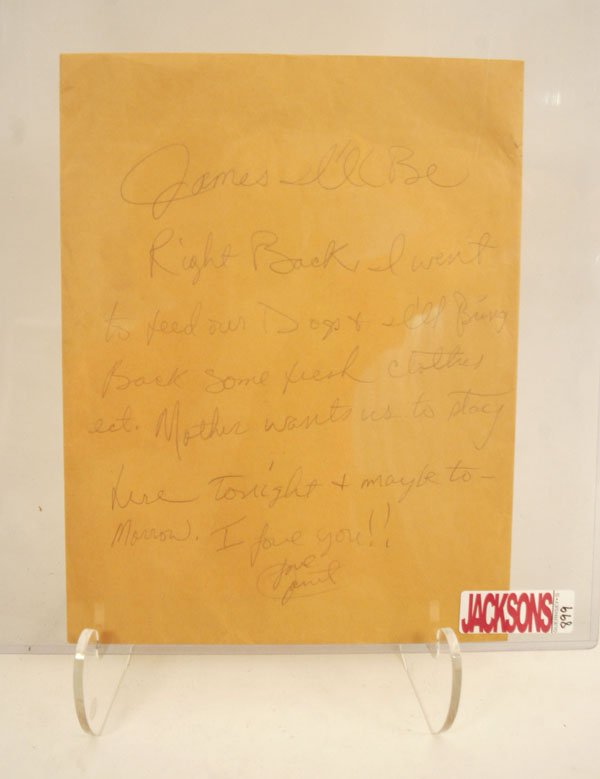 James I'll Be
Right Back, I went
to feed our Dogs & I'll Bring
Back some fresh clothes
ect. Mother wants us to stay
here Tonight & maybe to-
Morrow. I love you!!
Love
JACKSONS
899